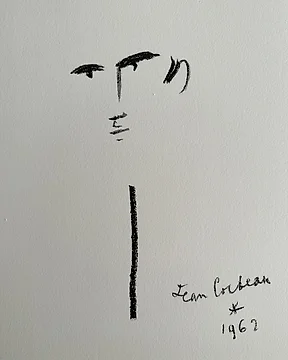 Jean Cocteau
*
1962